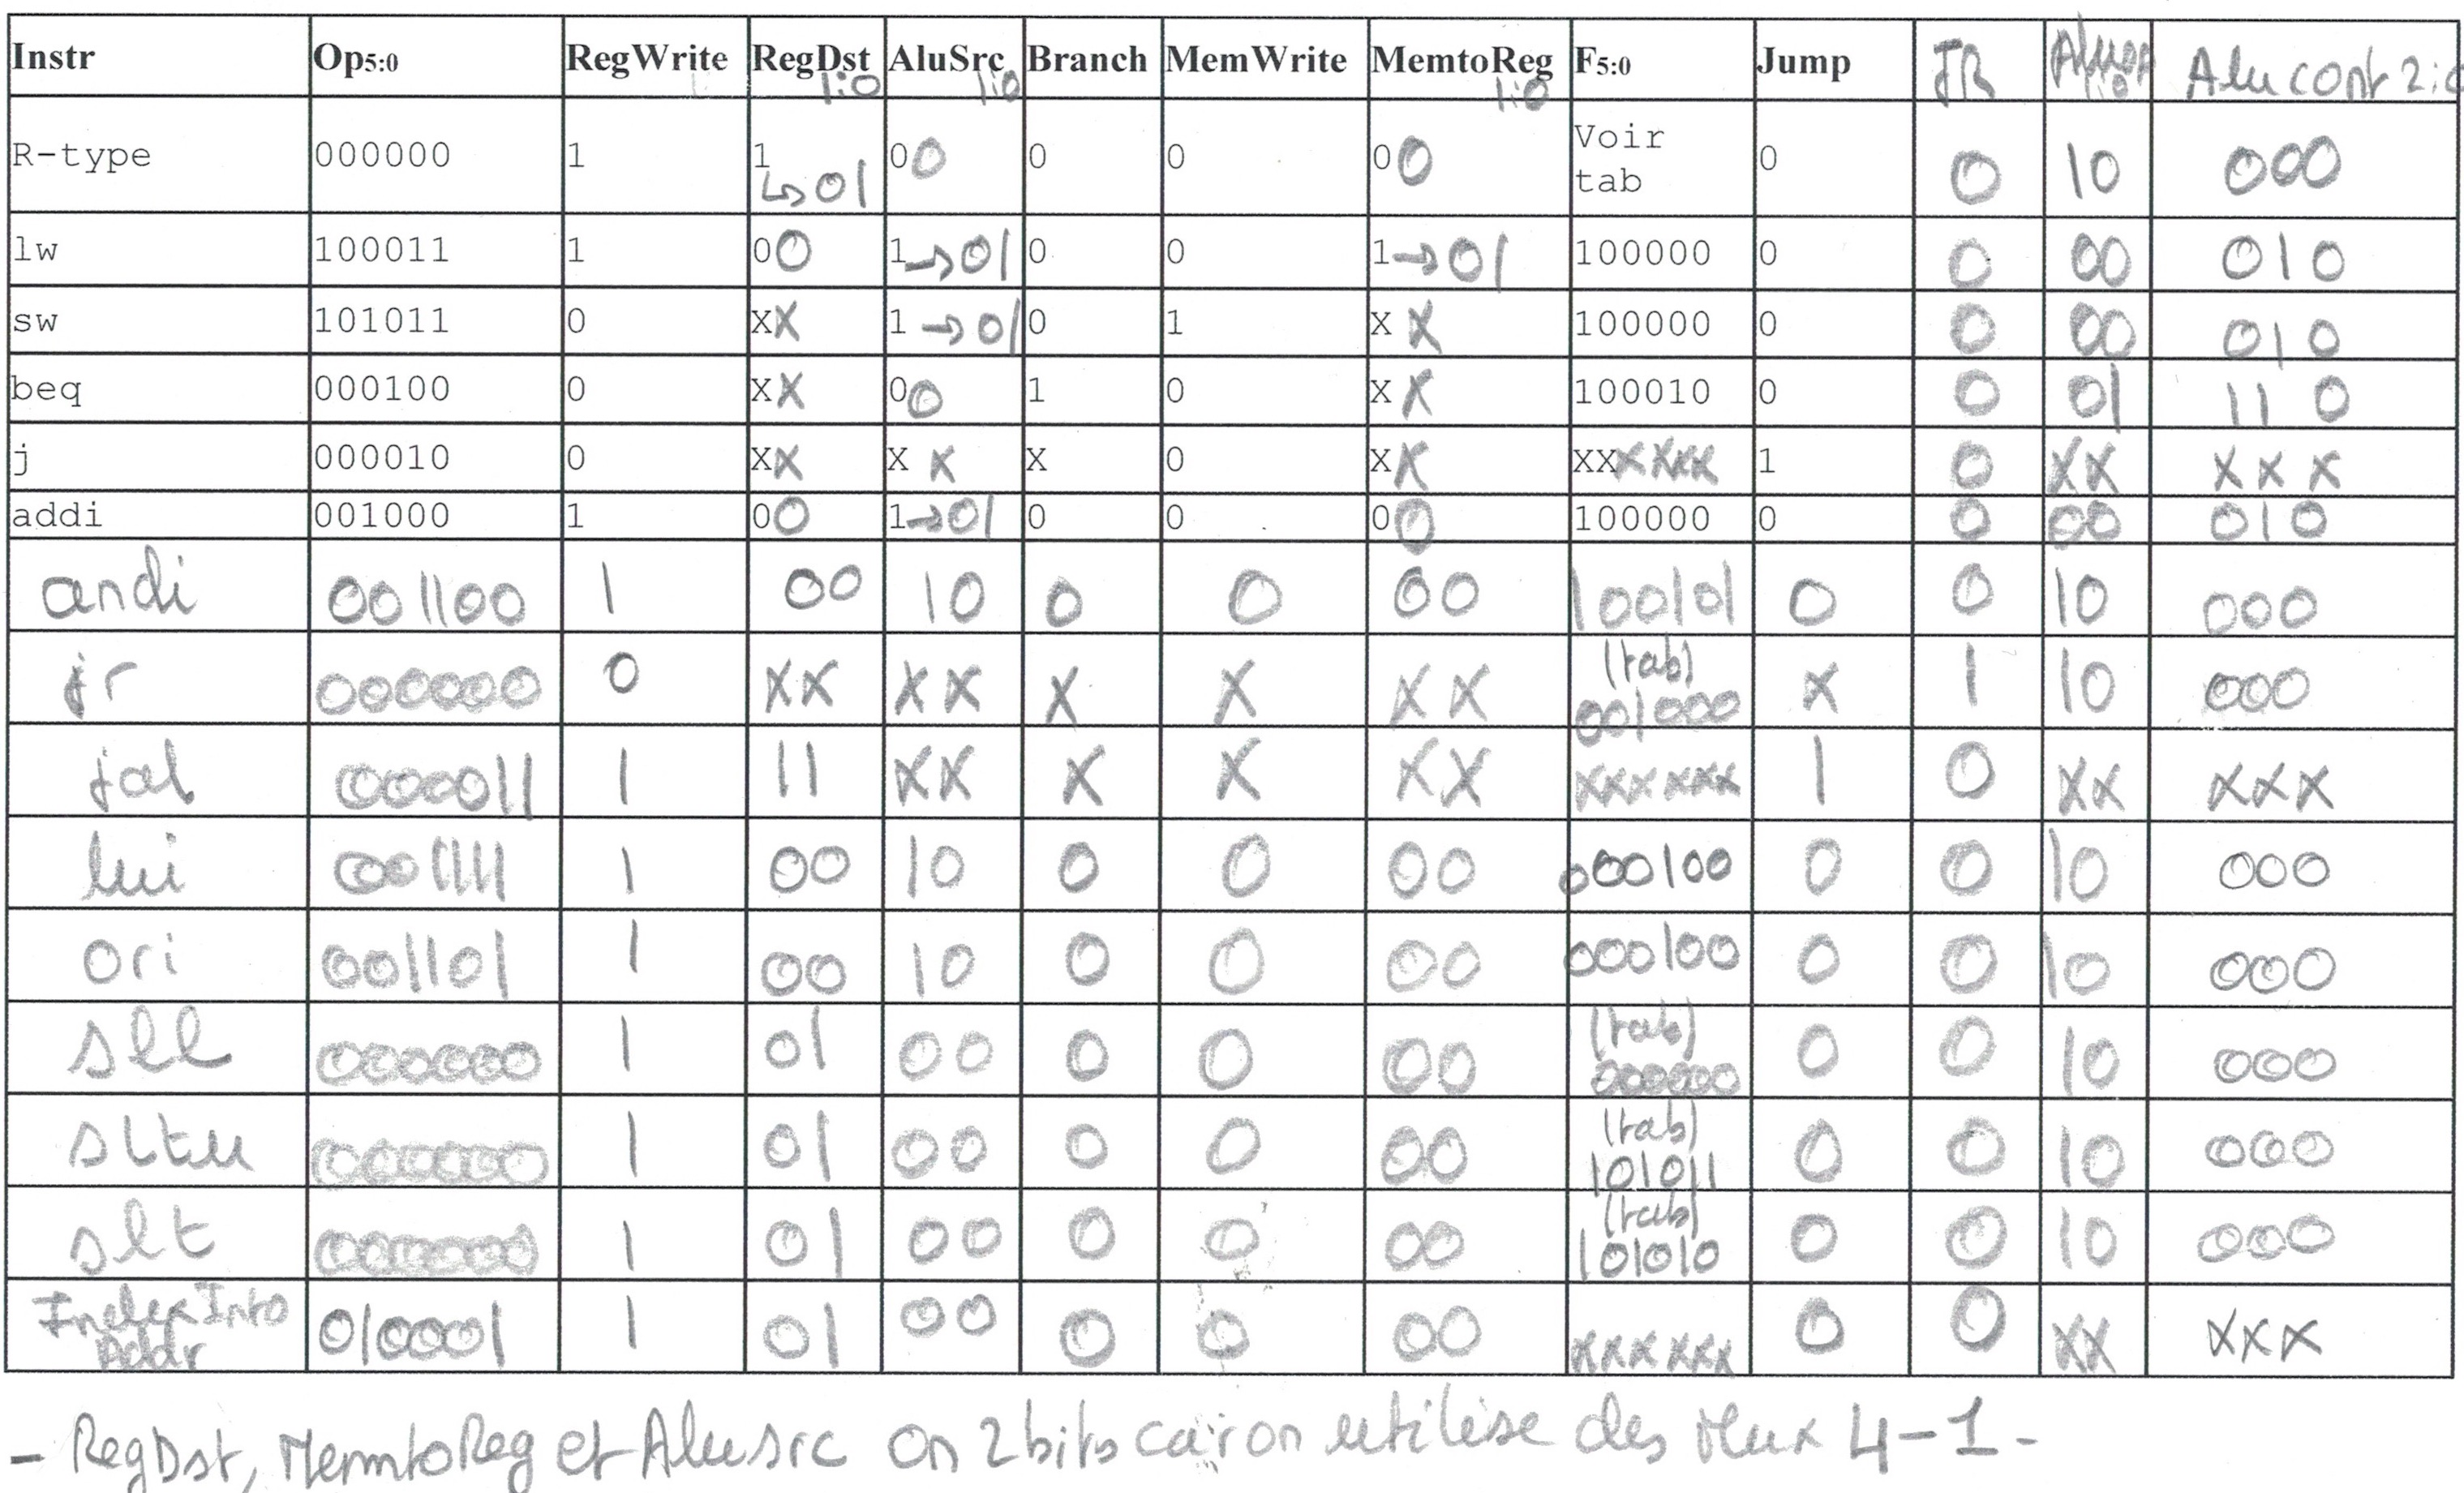 Instr Op5:0 RegWrite RegDst 1:0 AluSrc 1:0 Branch MemWrite MemtoReg 1:0 F5:0 Jump JR 1:0 Alu cont 2:0
R-type 000000 1 1 ↳01 00 0 0 00 Voir tab 0 0 10 000
lw 100011 1 00 1→01 0 0 1→01 100000 0 0 00 010
sw 101011 0 XX 1→01 0 1 XX 100000 0 0 00 010
beq 000100 0 XX 00 1 0 XX 100010 0 0 01 110
j 000010 0 XX XX X 0 XX XXXXXX 1 0 XX XXX
addi 001000 1 00 1→01 0 0 00 100000 0 0 00 010
andi 001100 1 00 10 0 0 00 100101 0 0 10 000
jr 000000 0 XX XX X X XX (tab) 001000 X 1 10 000
jal 000011 1 11 XX X X XX XXXXXX 1 0 XX XXX
lui 001111 1 00 10 0 0 00 000100 0 0 10 000
ori 001101 1 00 10 0 0 00 000100 0 0 10 000
sll 000000 1 01 00 0 0 00 (tab) 000000 0 0 10 000
sltu 000000 1 01 00 0 0 00 (tab) 101011 0 0 10 000
slt 000000 1 01 00 0 0 00 (tab) 101010 0 0 10 000
IndexInto Addr 010001 1 01 00 0 0 00 XXXXXX 0 0 XX XXX
- RegDst, MemtoReg et Alusrc on 2 bits car on utilise des Mux 4-1-